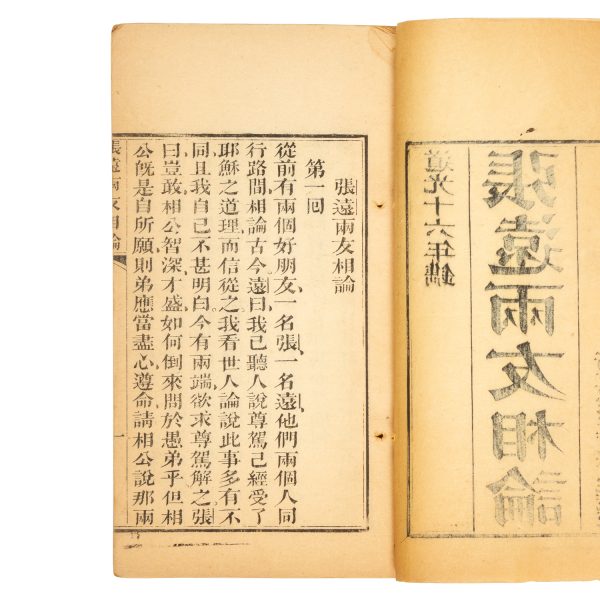 道光十六年鐫
張遠兩友相論
張遠兩友相論
第一回
從前有兩個好朋友、一名張、一名遠、他們兩個人同
行路間相論古今、遠曰、我已聽人說尊駕已經受了
耶穌之道理、而信從之、我看世人論說此事多有不
同、且我自己不甚明白、今有兩端、欲求尊駕解之、張
曰、豈敢、相公智深、才盛、如何倒來問於愚弟乎、但相
公既是自所願、則弟應當盡心遵命、請相公說那兩
張遠兩友相論
一